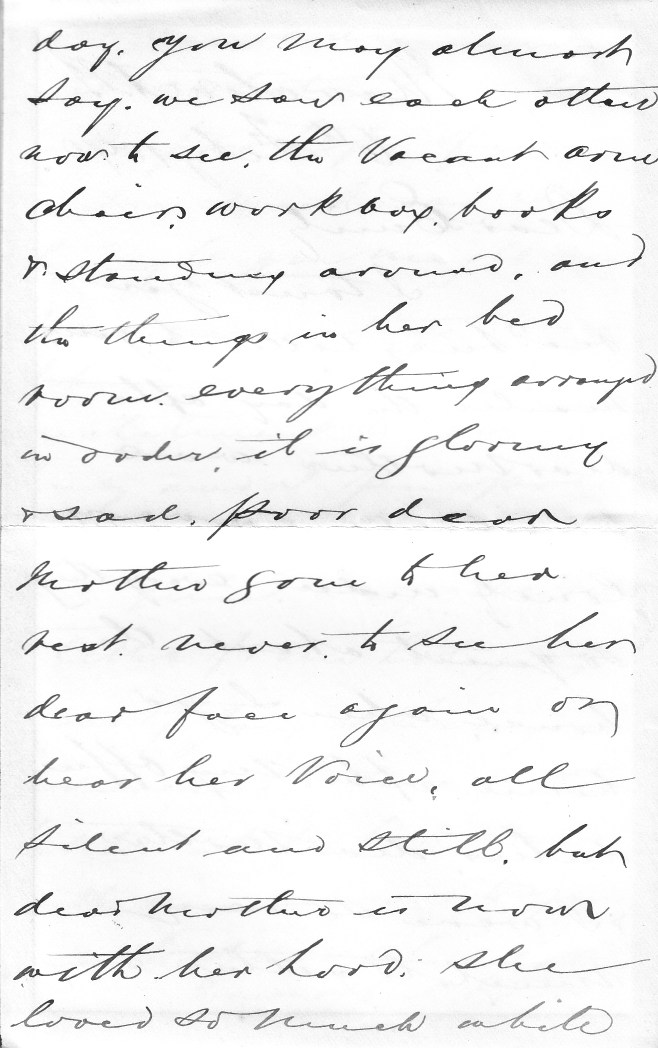 day. you may almost
say. we saw each other
now to see, the Vacant arm
chair, workbox, books
& standing around, and
the things in her bed
room. everything arranged
in order, it is gloomy
& sad. poor dear
Mother gone to her
rest. never. to see her
dear face again or
hear her Voice, all
silent and still. but
dear Mother is now
with her Lord. she
loved so much while